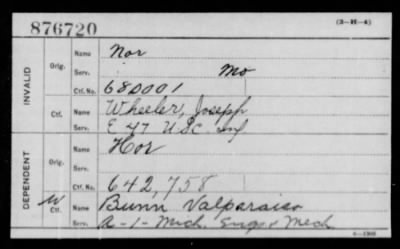 876720
(3-H-4)
INVALID
Orig.
Name Nor
Serv. Mo
Ctf. No. 680001
Ctf.
Name Wheeler, Joseph
Serv. E 47 U.S.C. Inf
DEPENDENT
Orig.
Name Hor
Serv.
Ctf. No. 642,758
W
Ctf.
Name Bunn Valparaiso
Serv. A-1-Mich. Engs & Mech